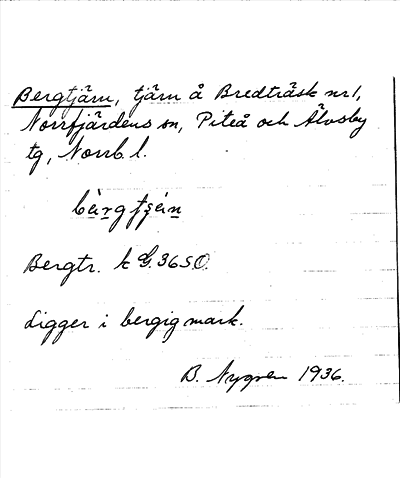 Bergtjärn, tjärn å Bredträsk nr 1,
Norrfjärdens sn, Piteå och Älvsby
tg, Norrb. l.
Bergtr. k G. 36 S.O.
Ligger i bergig mark.
B. Nygren 1936.